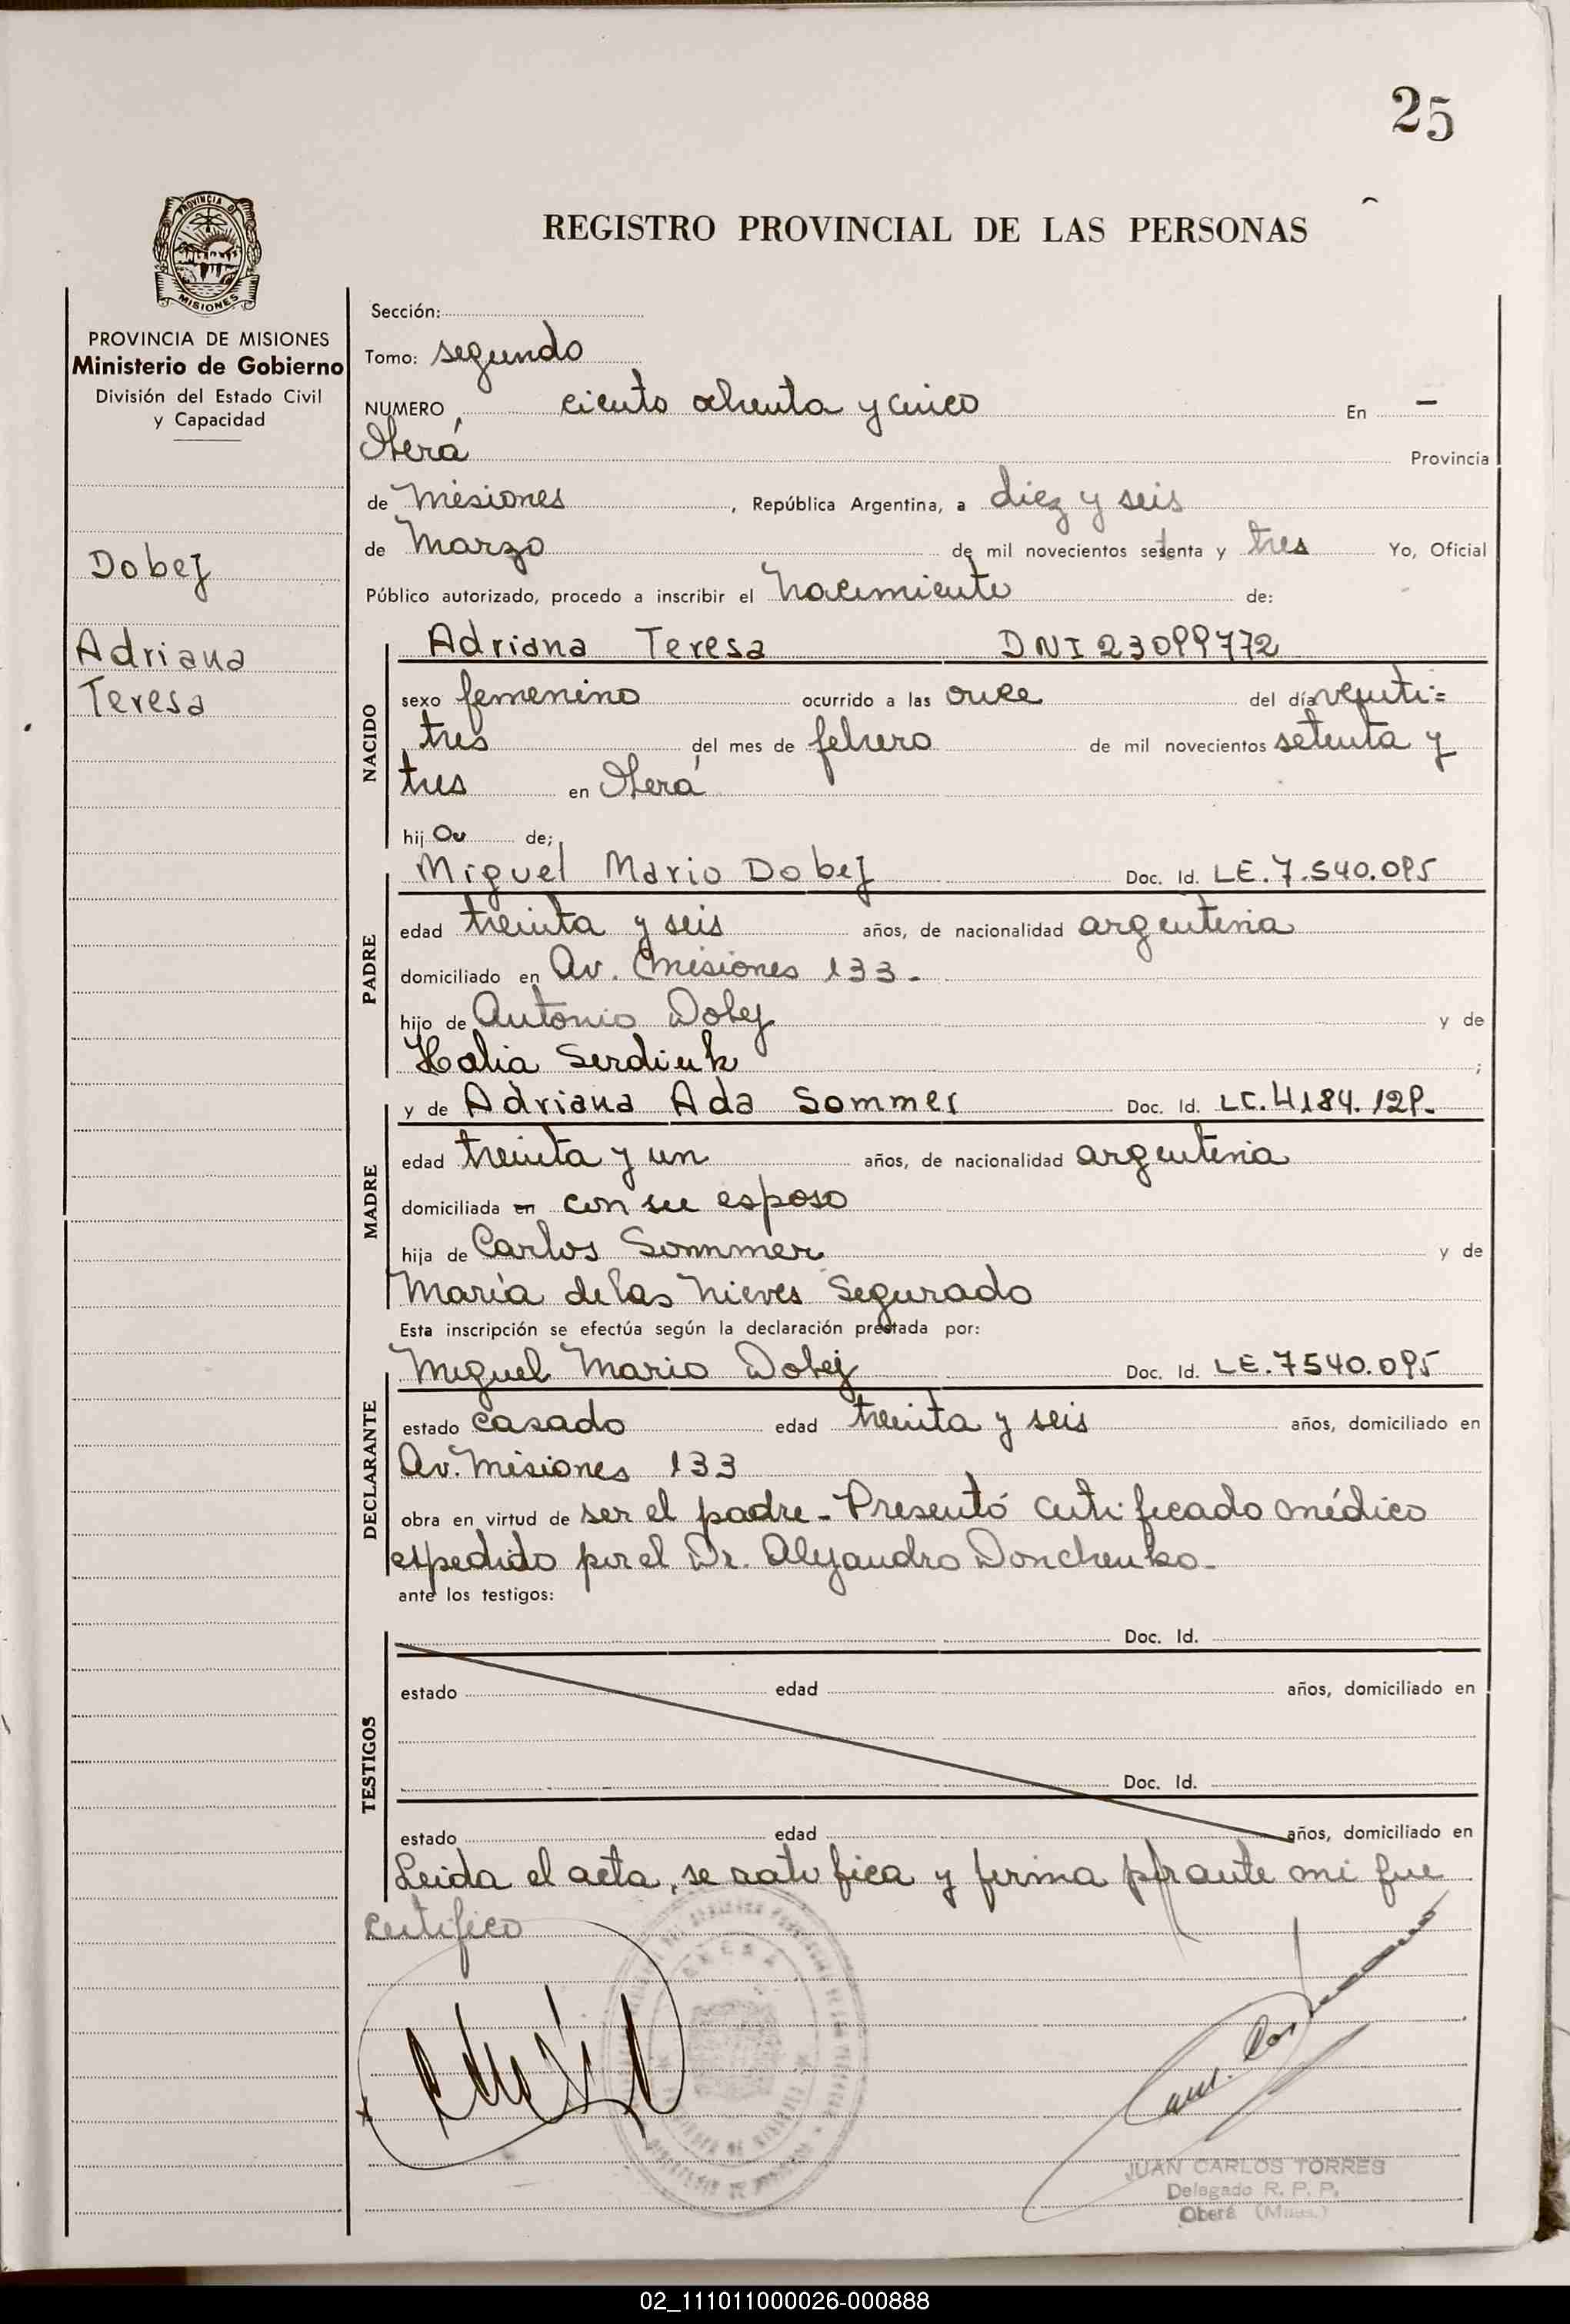 25
REGISTRO PROVINCIAL DE LAS PERSONAS
PROVINCIA DE
MISIONES
PROVINCIA DE MISIONES
Ministerio de Gobierno
División del Estado Civil
y Capacidad
Dobej
Adriana
Teresa
Sección:
Tomo: segundo
NUMERO ciento ochenta y cinco En -
Oberá Provincia
de Misiones, República Argentina, a diez y seis
de Marzo de mil novecientos setenta y tres Yo, Oficial
Público autorizado, procedo a inscribir el Nacimiento de:
NACIDO
Adriana Teresa DNI 23099772
sexo femenino ocurrido a las once del día veinti=
tres del mes de febrero de mil novecientos setenta y
tres en Oberá
hij a de;
PADRE
Miguel Mario Dobej Doc. Id. LE. 7.540.095
edad treinta y seis años, de nacionalidad argentina
domiciliado en Av. Misiones 133.-
hijo de Antonio Dobej y de
Halia Serdiuk ;
MADRE
y de Adriana Ada Sommer Doc. Id. LC. 4184.129.
edad treinta y un años, de nacionalidad argentina
domiciliada en con su esposo
hija de Carlos Sommer y de
María de las Nieves Segurado
Esta inscripción se efectúa según la declaración prestada por:
DECLARANTE
Miguel Mario Dobej Doc. Id. LE. 7540.095
estado casado edad treinta y seis años, domiciliado en
Av. Misiones 133
obra en virtud de ser el padre - Presentó certificado médico
expedido por el Dr. Alejandro Donchenko.-
ante los testigos:
TESTIGOS
Doc. Id.
estado edad años, domiciliado en
Doc. Id.
estado edad años, domiciliado en
Leida el acta, se ratifica y firma por ante mi que
certifico
JUAN CARLOS TORRES
Delegado R. P. P.
Oberá (Mnes.)
02_111011000026-000888